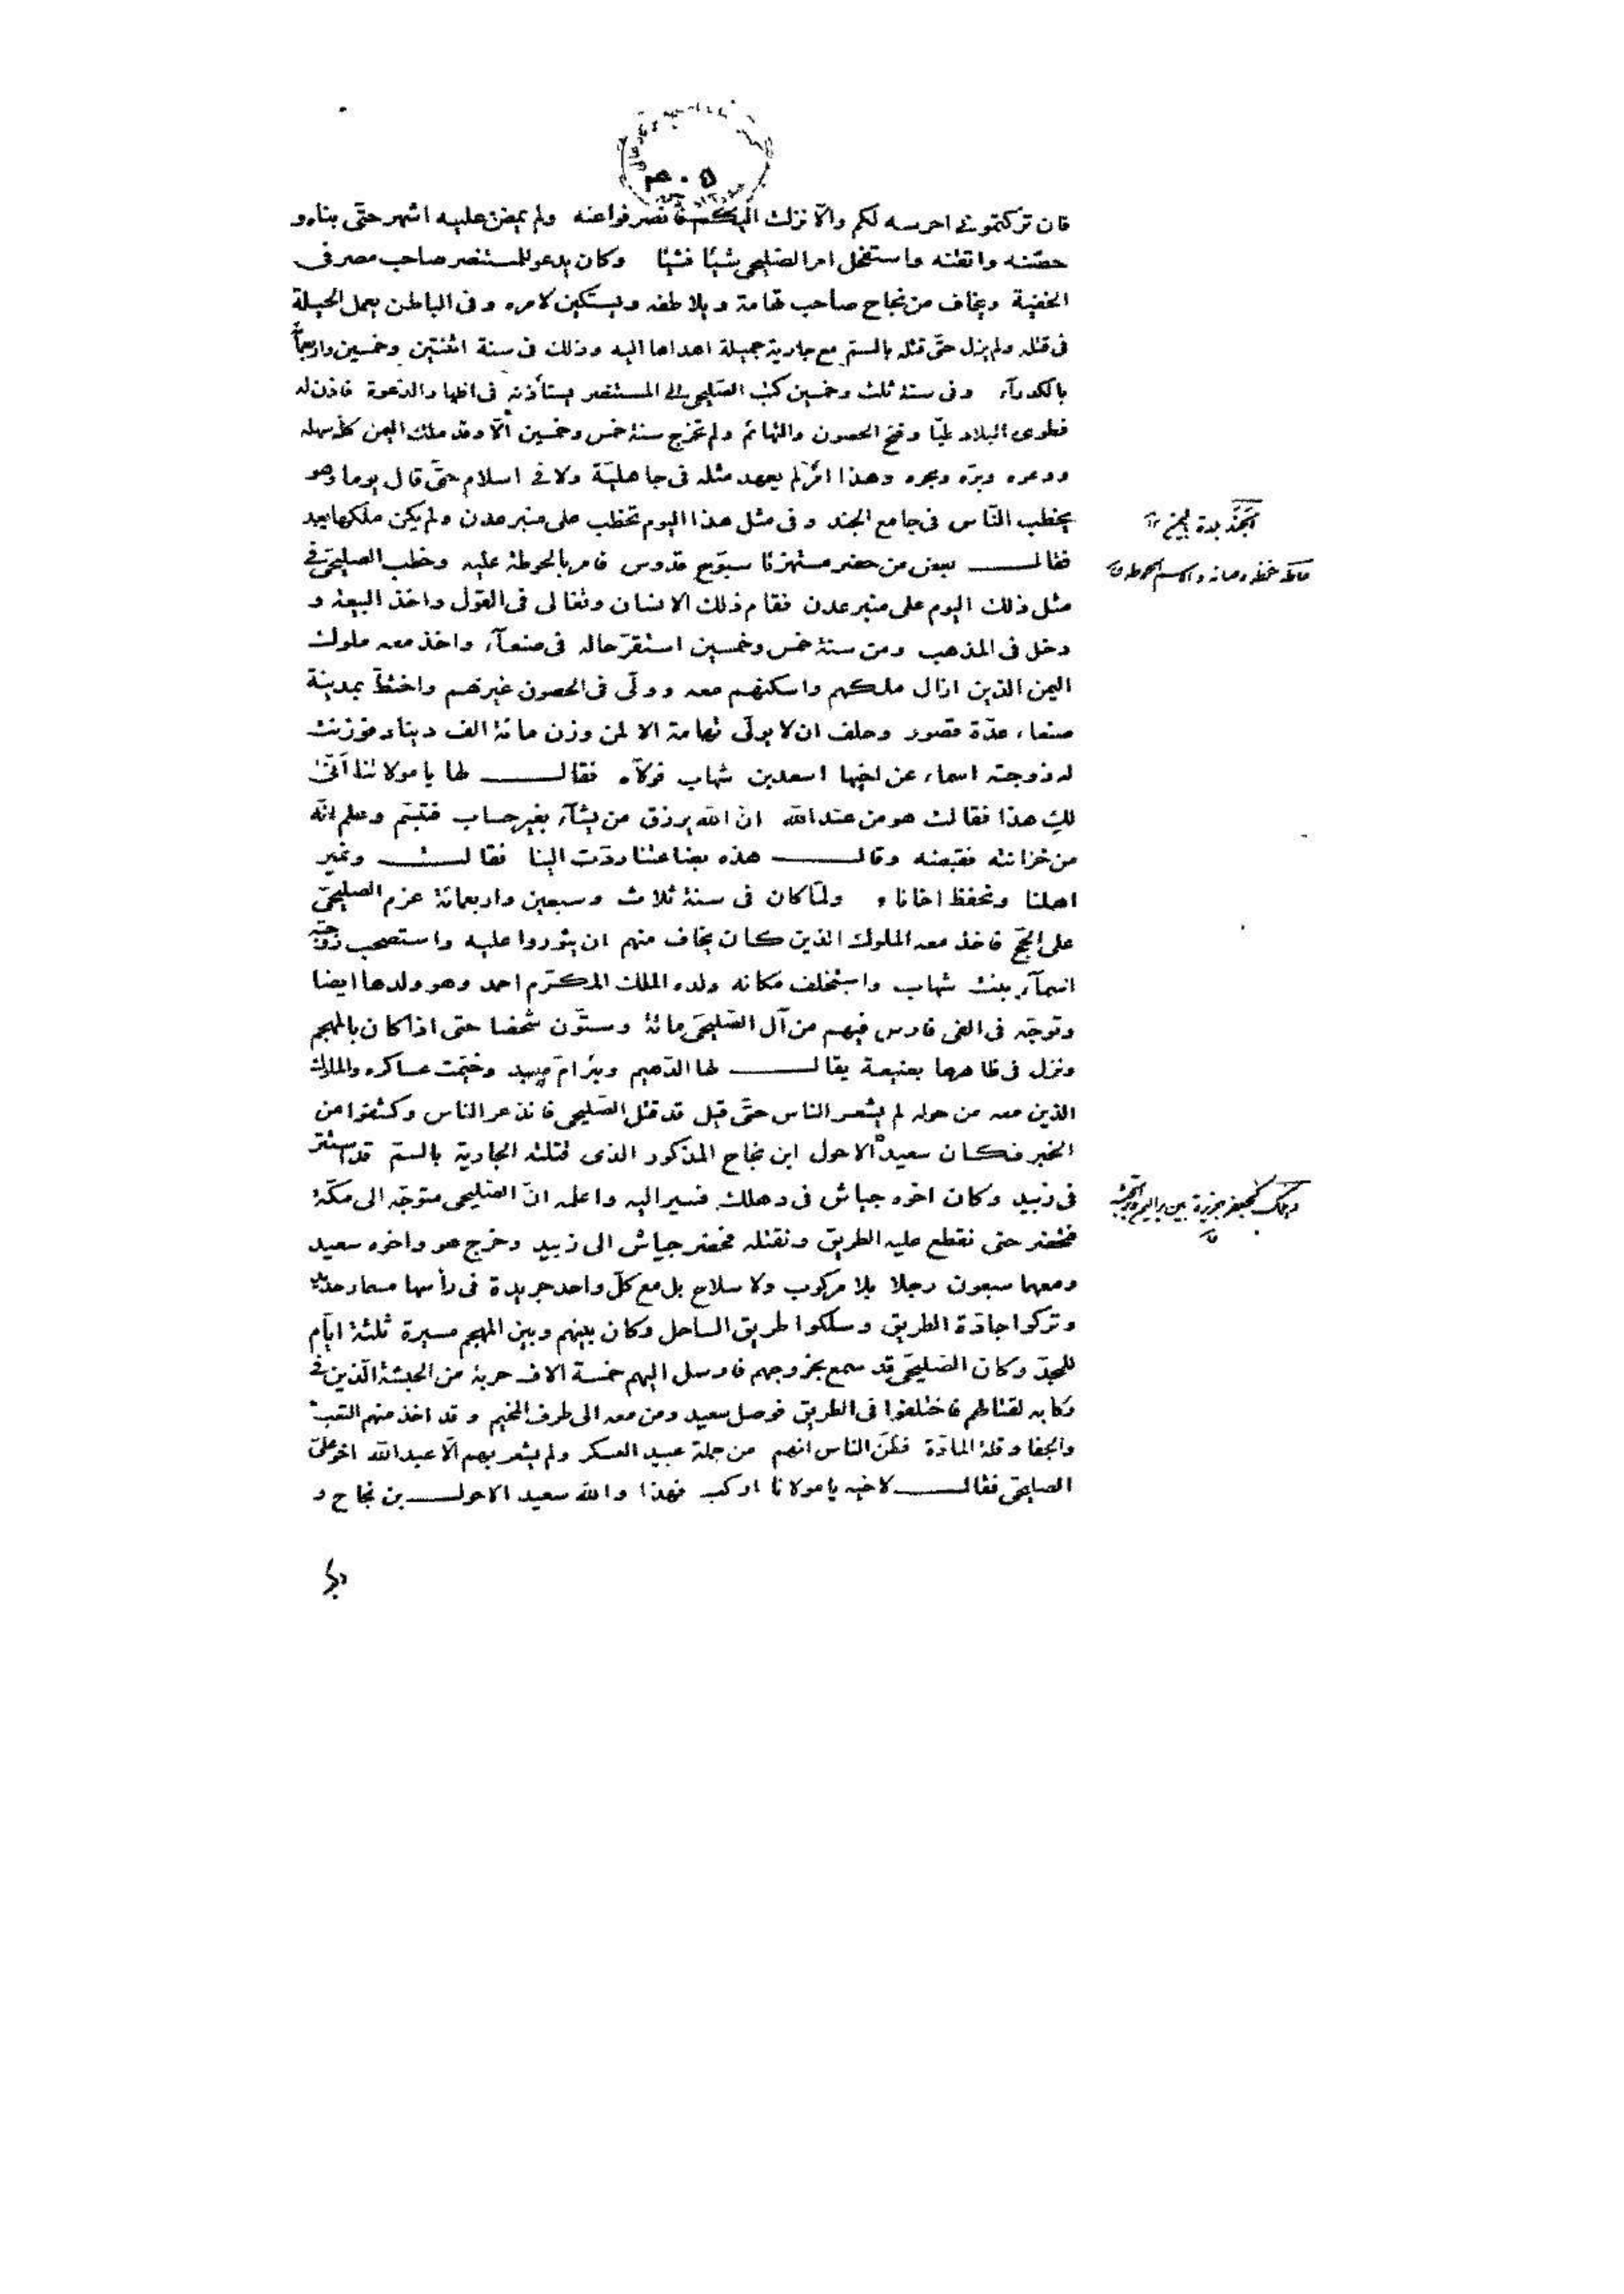 فان تركتمونى احرسه لكم والّا نزلت اليكم فانصرفوا عنه ولم يمض عليه اشهر حتّى بناه و
حصّنه واتقنه واستفحل امر الصّليحى شيئا فشيئا وكان يدعو للمستنصر صاحب مصر فى
الخفية ويخاف من نجاح صاحب تهامة ويلاطفه ويستكين لامره وفى الباطن يعمل الحيلة
فى قتله ولم يزل حتّى قتله بالسمّ مع جارية جميلة اهداها اليه وذلك فى سنة اثنتين وخمسين واربعمأة
بالكدرآء وفى سنة ثلث وخمسين كتب الصّليحى الى المستنصر يستأذنه فى اظهار الدّعوة فاذن له
فطوى البلاد طيّا وفتح الحصون والتهائم ولم تخرج سنة خمس وخمسين الّا وقد ملك اليمن كلّه سهله
ووعره وبرّه وبحره وهذا امر لم يعهد مثله فى جاهليّة ولا فى اسلام حتّى قال يوما وهو
يخطب النّاس فى جامع الجند وفى مثل هذا اليوم نخطب على منبر عدن ولم يكن ملكها بعد
فقال بعض من حضر مستهزئا سبّوح قدوس فامر بالحوطة عليه وخطب الصليحىّ فى
مثل ذلك اليوم على منبر عدن فقام ذلك الانسان وتغالى فى القول واخذ البيعة و
دخل فى المذهب ومن سنة خمس وخمسين استقرّ حاله فى صنعآء واخذ معه ملوك
اليمن الذين ازال ملكهم واسكنهم معه وولّى فى الحصون غيرهم واختطّ بمدينة
صنعاء عدّة قصور وحلف ان لا يولّى تهامة الا لمن وزن مائة الف دينار فوزنت
له زوجته اسماء عن اخيها اسعد بن شهاب فولّاه فقال لها يا مولاتنا أنّى
لكِ هذا فقالت هو من عند الله انّ الله يرزق من يشآء بغير حساب فتبسّم وعلم انّه
من خزانته فقبضه وقال هذه بضاعتنا ردّت الينا فقالت ونمير
اهلنا ونحفظ اخانا ولمّا كان فى سنة ثلاث وسبعين واربعمائة عزم الصليحىّ
على الحجّ فاخذ معه الملوك الذين كان يخاف منهم ان يثوروا عليه واستصحب زوجته
اسمآء بنت شهاب واستخلف مكانه ولده الملك المكرّم احمد وهو ولدها ايضا
وتوجّه فى الفى فارس فيهم من آل الصّليحى مائة وستّون شخصا حتى اذا كان بالمهجم
ونزل فى ظاهرها بضيعة يقال لها الدّهيم وبئر امّ معبد وخيّمت عساكره والملوك
الذين معه من حوله لم يشعر الناس حتّى قيل قد قتل الصّليحى فانذعر الناس وكشفوا عن
الخبر فكان سعيد الاحول ابن نجاح المذكور الذى قتلته الجارية بالسمّ قد استتر
فى زبيد وكان اخوه جياش فى دهلك فسير اليه واعلمه انّ الصّليحى متوجّه الى مكّة
فتحضر حتى نقطع عليه الطريق ونقتله فحضر جياش الى زبيد وخرج هو واخوه سعيد
ومعهما سبعون رجلا بلا مركوب ولا سلاح بل مع كلّ واحد جريدة فى رأسها مسمار حديد
وتركوا جادّة الطريق وسلكوا طريق الساحل وكان بينهم وبين المهجم مسيرة ثلثة ايّام
للمجدّ وكان الصّليحى قد سمع بخروجهم فارسل اليهم خمسة الاف حربة من الحبشة الّذين فى
ركابه لقتالهم فاختلفوا فى الطريق فوصل سعيد ومن معه الى طرف المخيم وقد اخذ منهم التعب
والحفا وقلة المادّة فظنّ الناس انهم من جملة عبيد العسكر ولم يشعر بهم الّا عبد الله اخو علىّ
الصليحى فقال لاخيه يا مولانا اركب فهذا والله سعيد الاحول بن نجاح و
الجند بلدة باليمن
حاطه حفظه وصانه والاسم الحوطة
دهلك كجعفر جزيرة بين بر اليمن وبر الحبشة